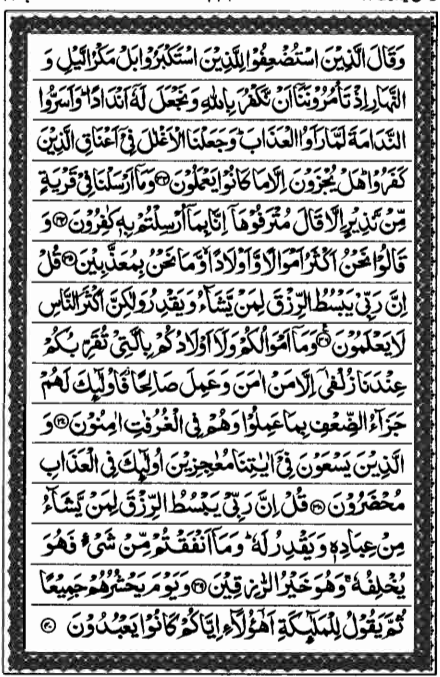 وَقَالَ الَّذِيْنَ اسْتُضْعِفُوْا لِلَّذِيْنَ اسْتَكْبَرُوْا بَلْ مَكْرُ الَّيْلِ وَ
النَّهَارِ اِذْ تَاْمُرُوْنَنَاۤ اَنْ نَّكْفُرَ بِاللّٰهِ وَنَجْعَلَ لَهٗۤ اَنْدَادًا ؕ وَاَسَرُّوا
النَّدَامَةَ لَمَّا رَاَوُا الْعَذَابَ ؕ وَجَعَلْنَا الْاَغْلٰلَ فِیْۤ اَعْنَاقِ الَّذِيْنَ
كَفَرُوْا ؕ هَلْ يُجْزَوْنَ اِلَّا مَا كَانُوْا يَعْمَلُوْنَ ﴿۳۳﴾ وَمَاۤ اَرْسَلْنَا فِیْ قَرْيَةٍ
مِّنْ نَّذِيْرٍ اِلَّا قَالَ مُتْرَفُوْهَاۤ ۙ اِنَّا بِمَاۤ اُرْسِلْتُمْ بِهٖ كٰفِرُوْنَ ﴿۳۴﴾ وَ
قَالُوْا نَحْنُ اَكْثَرُ اَمْوَالًا وَّاَوْلَادًا ۙ وَّمَا نَحْنُ بِمُعَذَّبِيْنَ ﴿۳۵﴾ قُلْ
اِنَّ رَبِّیْ يَبْسُطُ الرِّزْقَ لِمَنْ يَّشَآءُ وَيَقْدِرُ وَلٰكِنَّ اَكْثَرَ النَّاسِ
لَا يَعْلَمُوْنَ ﴿۳۶﴾ وَمَاۤ اَمْوَالُكُمْ وَلَاۤ اَوْلَادُكُمْ بِالَّتِیْ تُقَرِّبُكُمْ
عِنْدَنَا زُلْفٰۤی اِلَّا مَنْ اٰمَنَ وَعَمِلَ صَالِحًا ؗ فَاُولٰٓئِكَ لَهُمْ
جَزَآءُ الضِّعْفِ بِمَا عَمِلُوْا وَهُمْ فِی الْغُرُفٰتِ اٰمِنُوْنَ ﴿۳۷﴾ وَ
الَّذِيْنَ يَسْعَوْنَ فِیْۤ اٰيٰتِنَا مُعٰجِزِيْنَ اُولٰٓئِكَ فِی الْعَذَابِ
مُحْضَرُوْنَ ﴿۳۸﴾ قُلْ اِنَّ رَبِّیْ يَبْسُطُ الرِّزْقَ لِمَنْ يَّشَآءُ
مِنْ عِبَادِهٖ وَيَقْدِرُ لَهٗ ؕ وَمَاۤ اَنْفَقْتُمْ مِّنْ شَیْءٍ فَهُوَ
يُخْلِفُهٗ ۚ وَهُوَ خَيْرُ الرّٰزِقِيْنَ ﴿۳۹﴾ وَيَوْمَ يَحْشُرُهُمْ جَمِيْعًا
ثُمَّ يَقُوْلُ لِلْمَلٰٓئِكَةِ اَهٰۤؤُلَآءِ اِيَّاكُمْ كَانُوْا يَعْبُدُوْنَ ﴿۴۰﴾